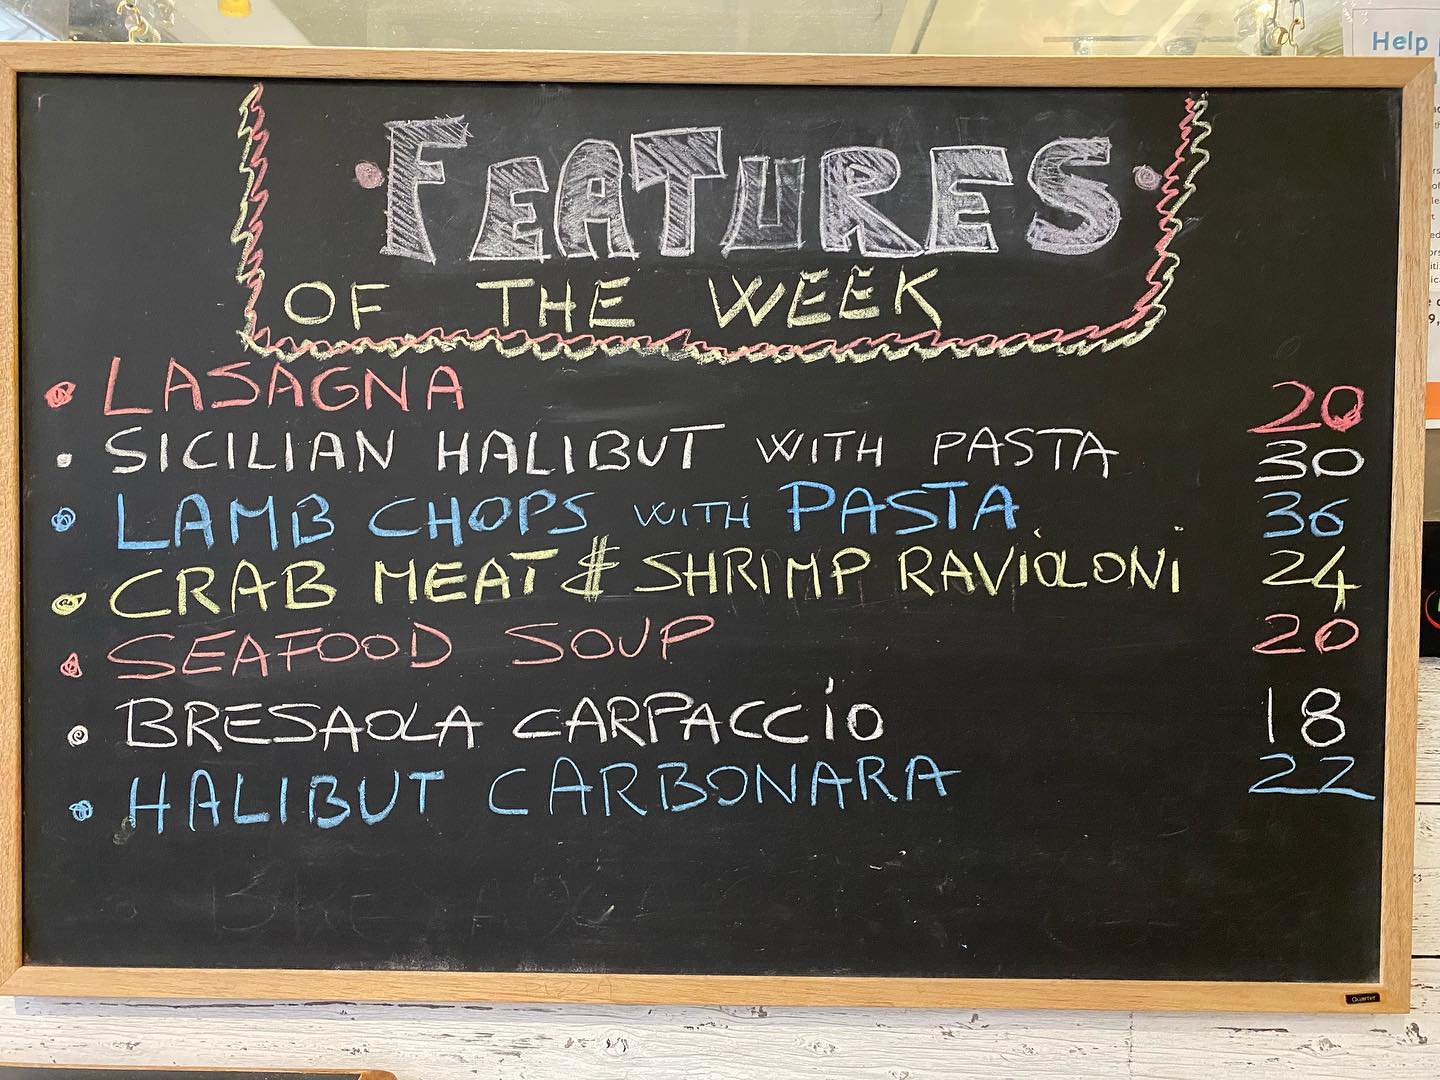 Help
FEATURES
OF THE WEEK
LASAGNA 20
SICILIAN HALIBUT WITH PASTA 30
LAMB CHOPS WITH PASTA 36
CRAB MEAT & SHRIMP RAVIOLONI 24
SEAFOOD SOUP 20
BRESAOLA CARPACCIO 18
HALIBUT CARBONARA 22
Quartet